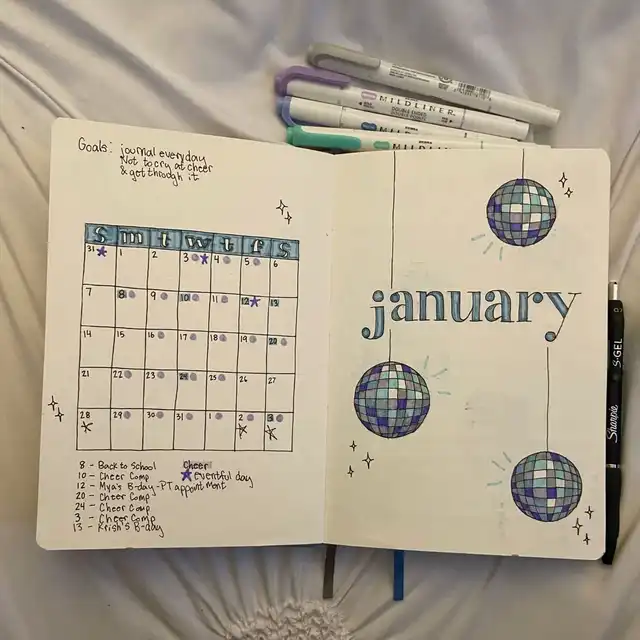 Goals: journal everyday
Not to cry at cheer
& get through it
S m t w t f s
31 1 2 3 4 5 6
7 8 9 10 11 12 13
14 15 16 17 18 19 20
21 22 23 24 25 26 27
28 29 30 31 1 2 3
8 - Back to School
10 - Cheer Comp
12 - Mya's B-day - PT appointment
20 - Cheer Comp
24 - Cheer Comp
3 - Cheer Comp
13 - Krish's B-day
Cheer
Eventful day
january
MILDLINER
DOUBLE ENDED
MILDLINER
MILDLINER
Sharpie
S·GEL